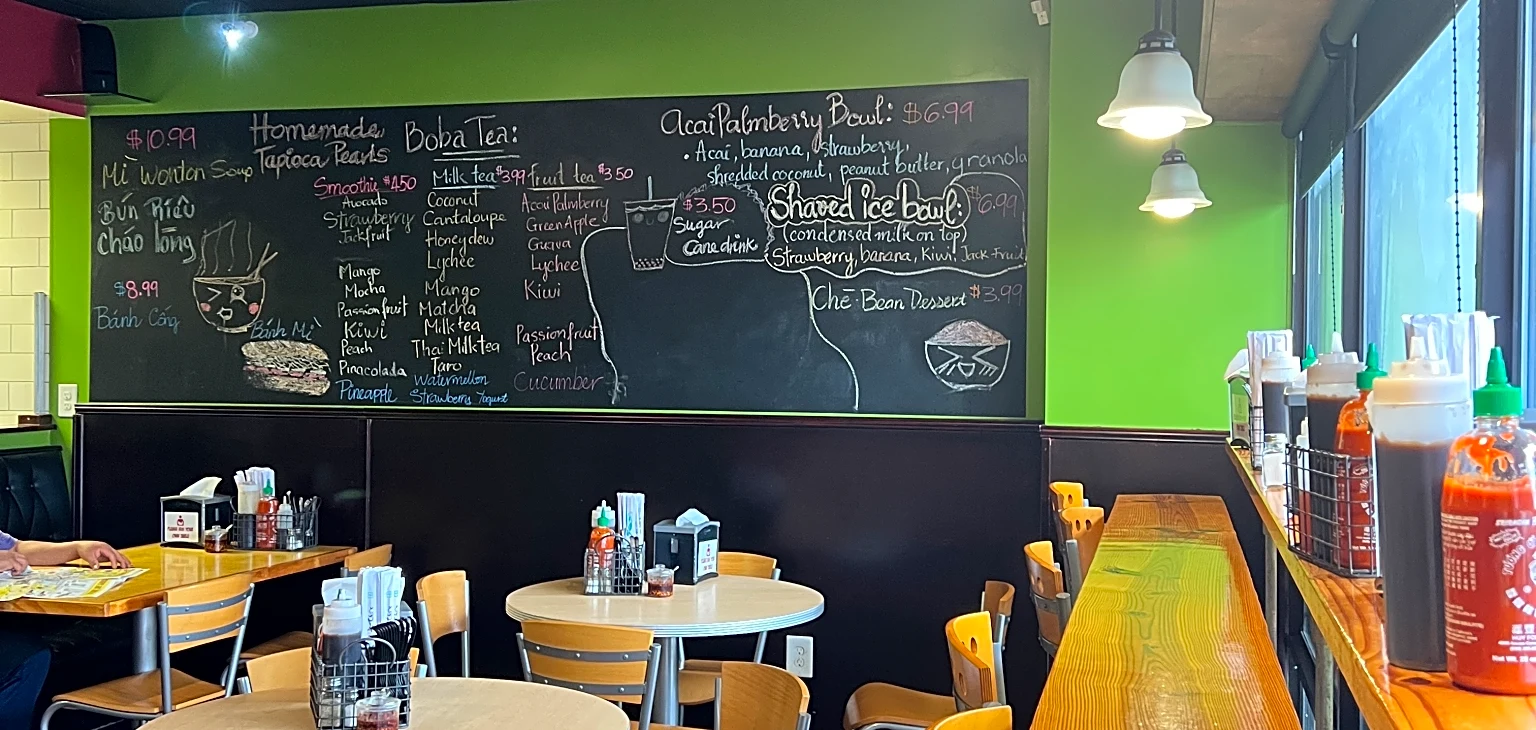 $10.99
Mì Wonton Soup
Bún Riêu
Cháo lòng
$8.99
Bánh Cống
Bánh Mì
Homemade
Tapioca Pearls
Boba Tea:
Smoothie $4.50
Avocado
Strawberry
Jackfruit
Mango
Mocha
Passionfruit
Kiwi
Peach
Pinacolada
Pineapple
Milk tea $3.99
Coconut
Cantaloupe
Honeydew
Lychee
Mango
Matcha
Milk tea
Thai Milk tea
Taro
Watermellon
Strawberry Yogurt
Fruit tea $3.50
Acai Palmberry
Green Apple
Guava
Lychee
Kiwi
Passionfruit
Peach
Cucumber
Acai Palmberry Bowl: $6.99
• Acai, banana, strawberry,
shredded coconut, peanut butter, granola
$3.50
Sugar
Cane drink
Shaved ice bowl: $6.99
(condensed milk on top)
Strawberry, banana, Kiwi, Jack Fruit
Chè - Bean Dessert $3.99